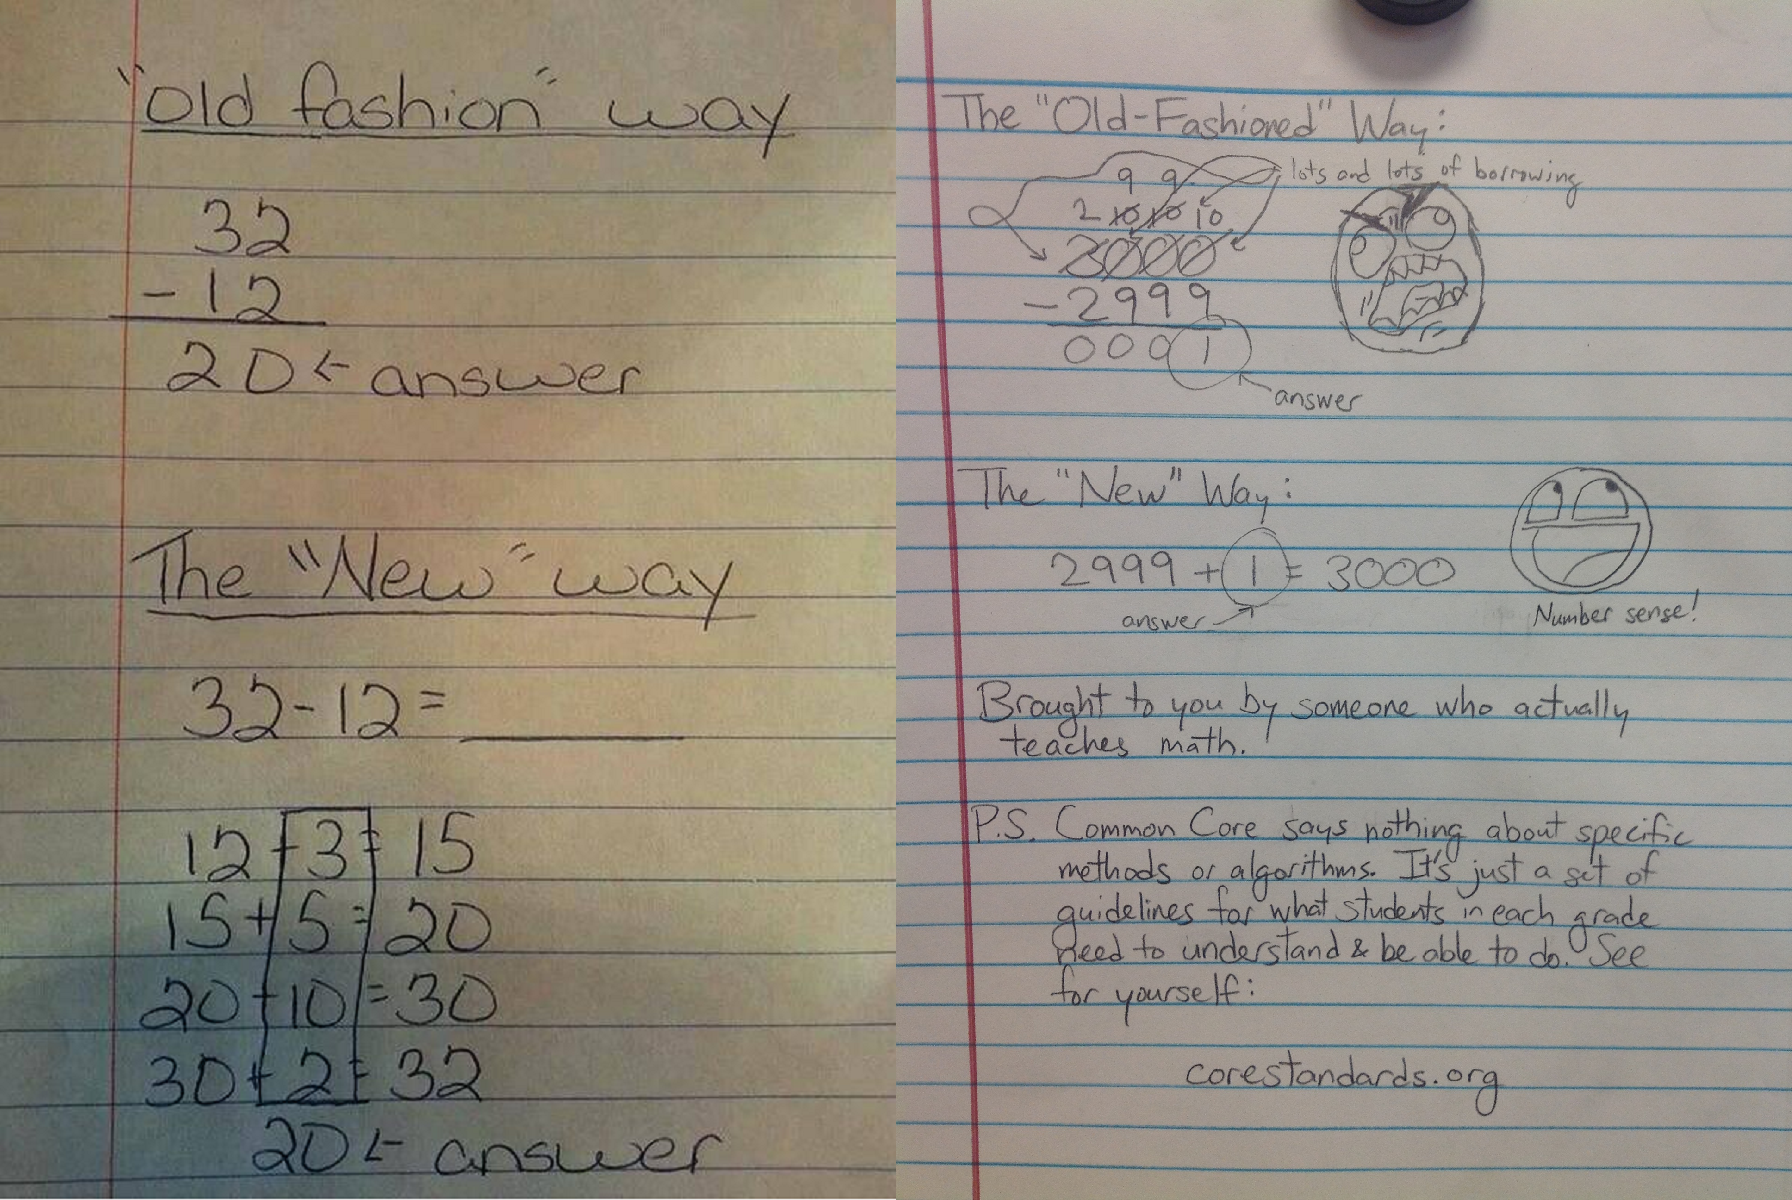 "Old fashion" way
32
- 12
20 ← answer
The "New" way
32 - 12 = ____
12 + 3 = 15
15 + 5 = 20
20 + 10 = 30
30 + 2 = 32
20 ← answer
The "Old-Fashioned" Way:
lots and lots of borrowing
9 9
2 10 10 10
3000
- 2999
0001
answer
The "New" Way:
2999 + 1 = 3000
answer
Number sense!
Brought to you by someone who actually
teaches math.
P.S. Common Core says nothing about specific
methods or algorithms. It's just a set of
guidelines for what students in each grade
need to understand & be able to do. See
for yourself:
corestandards.org